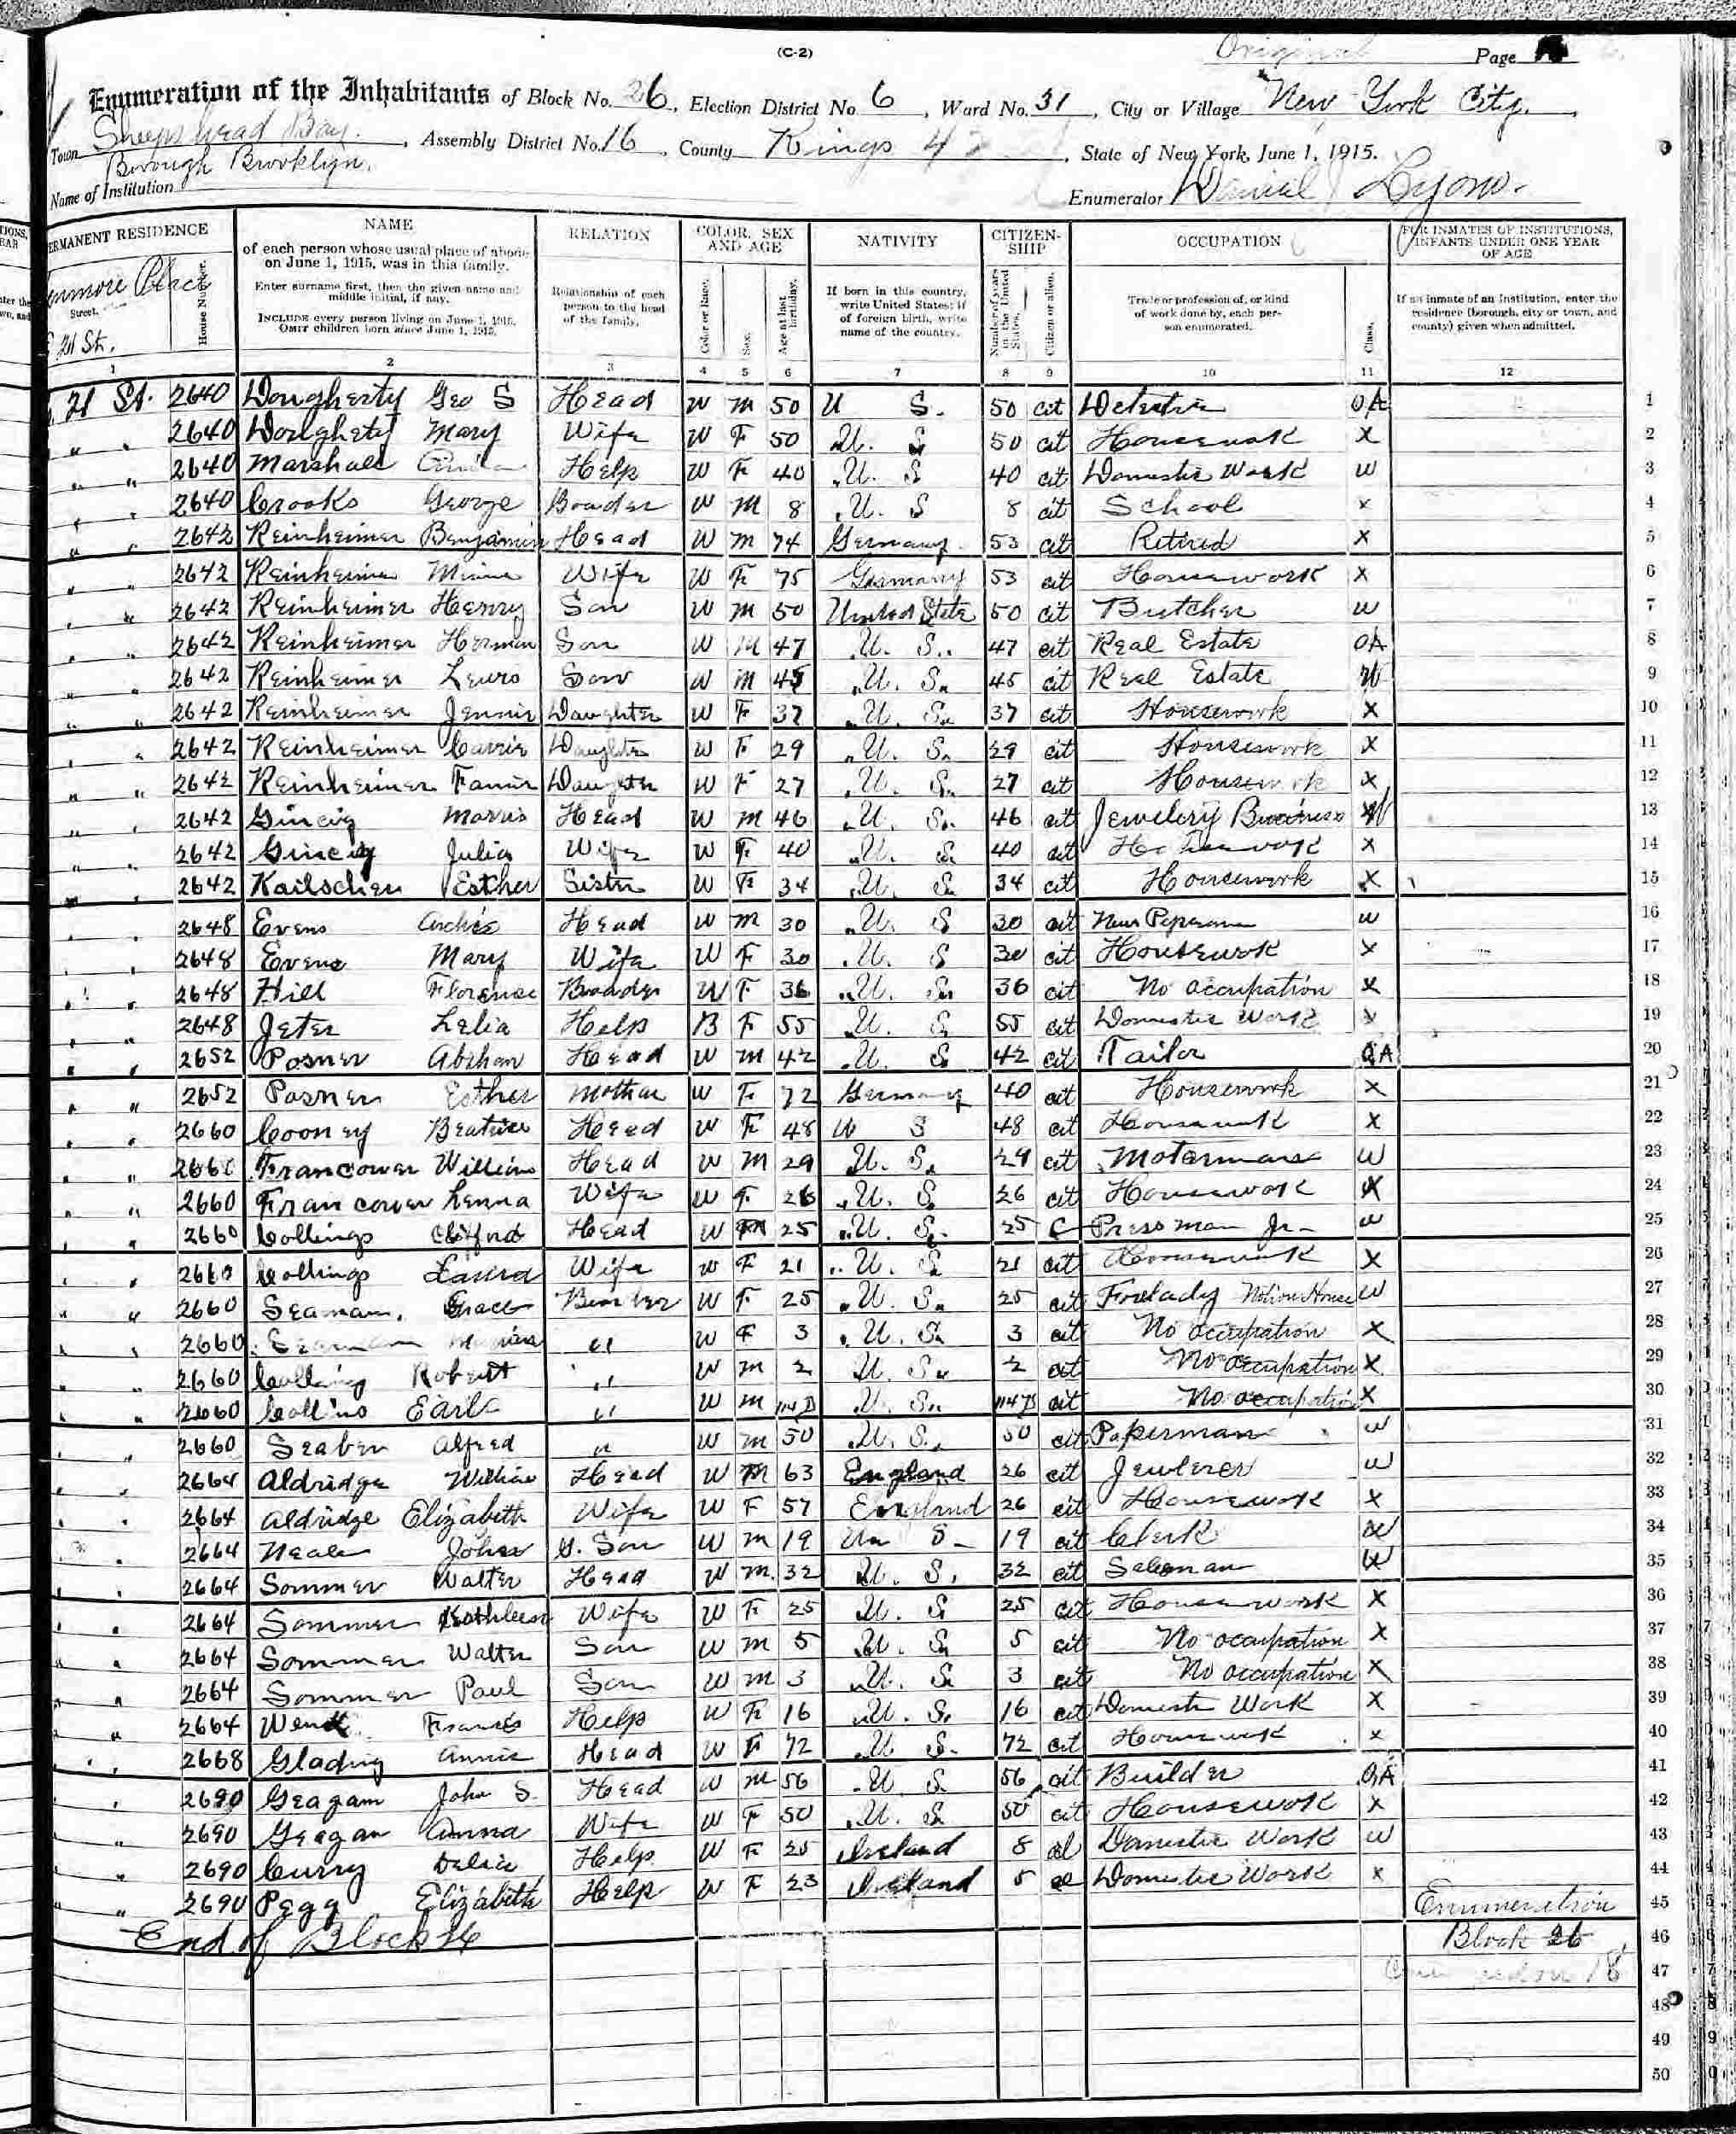 (C-2)
Original Page
Enumeration of the Inhabitants of Block No. 26, Election District No. 6, Ward No. 31, City or Village New York City.
Town Sheepshead Bay, Assembly District No. 16, County Kings 42, State of New York, June 1, 1915.
Borough Brooklyn.
Name of Institution Enumerator Daniel J Lyons.
ERMANENT RESIDENCE NAME RELATION COLOR, SEX AND AGE NATIVITY CITIZEN-SHIP OCCUPATION FOR INMATES OF INSTITUTIONS, INFANTS UNDER ONE YEAR OF AGE
of each person whose usual place of abode on June 1, 1915, was in this family.
Enter surname first, then the given name and middle initial, if any.
INCLUDE every person living on June 1, 1915. OMIT children born since June 1, 1915.
Relationship of each person to the head of the family.
Color or Race. Sex. Age at last birthday.
If born in this country, write United States; if of foreign birth, write name of the country.
Number of years in the United States. Citizen or alien.
Trade or profession of, or kind of work done by, each person enumerated. Class.
If an inmate of an institution, enter the residence (borough, city or town, and county) given when admitted.
enmore Place Street. House Number.
E 21 St.
1 2 3 4 5 6 7 8 9 10 11 12
21 St. 2640 Dougherty Geo S Head W M 50 U S. 50 cit Detective OA 1
" " 2640 Doughety Mary Wife W F 50 U. S 50 cit Housework X 2
" " 2640 Marshall Help W F 40 U. S 40 cit Domestic Work W 3
" " 2640 Crooks George Boader W M 8 U. S 8 cit School x 4
" " 2642 Reinheimer Benjamin Head W M 74 Germany 53 cit Retired X 5
" " 2642 Reinheimer Minnie Wife W F 75 Germany 53 cit Housework X 6
" " 2642 Reinheimer Henry Son W M 50 United State 50 cit Butcher W 7
" " 2642 Reinheimer Herman Son W M 47 U. S. 47 cit Real Estate OA 8
" " 2642 Reinheimer Lewis Son W M 45 U. S. 45 cit Real Estate W 9
" " 2642 Reinheimer Jennie Daughter W F 37 U. S. 37 cit Housework X 10
" 2642 Reinheimer Carrie Daughter W F 29 U. S. 29 cit Housework X 11
" " 2642 Reinheimer Fannie Daughter W F 27 U. S. 27 cit Housework X 12
" " 2642 Morris Head W M 46 U. S. 46 cit Jewelery Business W 13
" " 2642 Julia Wife W F 40 U. S 40 cit Housework X 14
" " 2642 Esther Sister W F 34 U. S 34 cit Housework X 15
" " 2648 Evens Archie Head W M 30 U. S 30 cit News Peperman W 16
" " 2648 Evens Mary Wife W F 30 U. S 30 cit Housewok X 17
" " 2648 Hill Florence Boader W F 36 U. S. 36 cit No occupation X 18
" " 2648 Jeter Lelia Help B F 55 U. S 55 cit Domestic Work X 19
" " 2652 Posner Abrham Head W M 42 U. S 42 cit Tailor OA 20
" " 2652 Posner Esther Mother W F 72 Germany 40 cit Housework X 21
" " 2660 Cooney Beatrice Head W F 48 U S 48 cit Housework X 22
" " 2660 Francower William Head W M 29 U. S. 29 cit Motorman W 23
" " 2660 Francower Lenna Wife W F 26 U. S. 26 cit Housework X 24
" " 2660 Collings Clifford Head W M 25 U. S. 25 C Pressman Jr. W 25
" 2660 Collings Laura Wife W F 21 U. S 21 cit Housework X 26
" " 2660 Seaman. Grace W F 25 U. S. 25 cit Forlady Notion House W 27
" " 2660 Seaman " W F 3 U. S. 3 cit No occupation X 28
" " 2660 Colling Robert " W M 2 U. S. 2 cit No occupation X 29
" " 2660 Collins Earle " W M U. S. cit No occupation X 30
" " 2660 Seaber Alfred " W M 50 U. S. 50 cit Paperman W 31
" " 2664 Aldridge William Head W M 63 England 26 cit Jewlerer W 32
" " 2664 Aldridge Elizabeth Wife W F 57 England 26 cit Housework X 33
" 2664 Neale John G. Son W M 19 Un S 19 cit Clerk W 34
" " 2664 Sommer Walter Head W M. 32 U. S. 32 cit Salesman W 35
" 2664 Sommer Kathleen Wife W F 25 U. S 25 cit Housework X 36
" " 2664 Sommer Walter Son W M 5 U. S 5 cit No occupation X 37
" " 2664 Sommer Paul Son W M 3 U. S 3 cit No occupation X 38
" " 2664 Wendt Francis Help W F 16 U. S. 16 cit Domestic Work X 39
" " 2668 Glading Annie Head W F 72 U S. 72 cit Housework x 40
" 2690 Geagam John S. Head W M 56 U S. 56 cit Builder OA 41
" 2690 Geagan Anna Wife W F 50 U. S 50 cit Housewok X 42
" 2690 Curry Delia Help W F 25 Ireland 8 al Domestic Work W 43
" 2690 Pegg Elizabeth Help W F 23 Ireland 5 al Domestic Work x 44
Enumeration 45
End of Block 26 Block 26 46
47
48
49
50